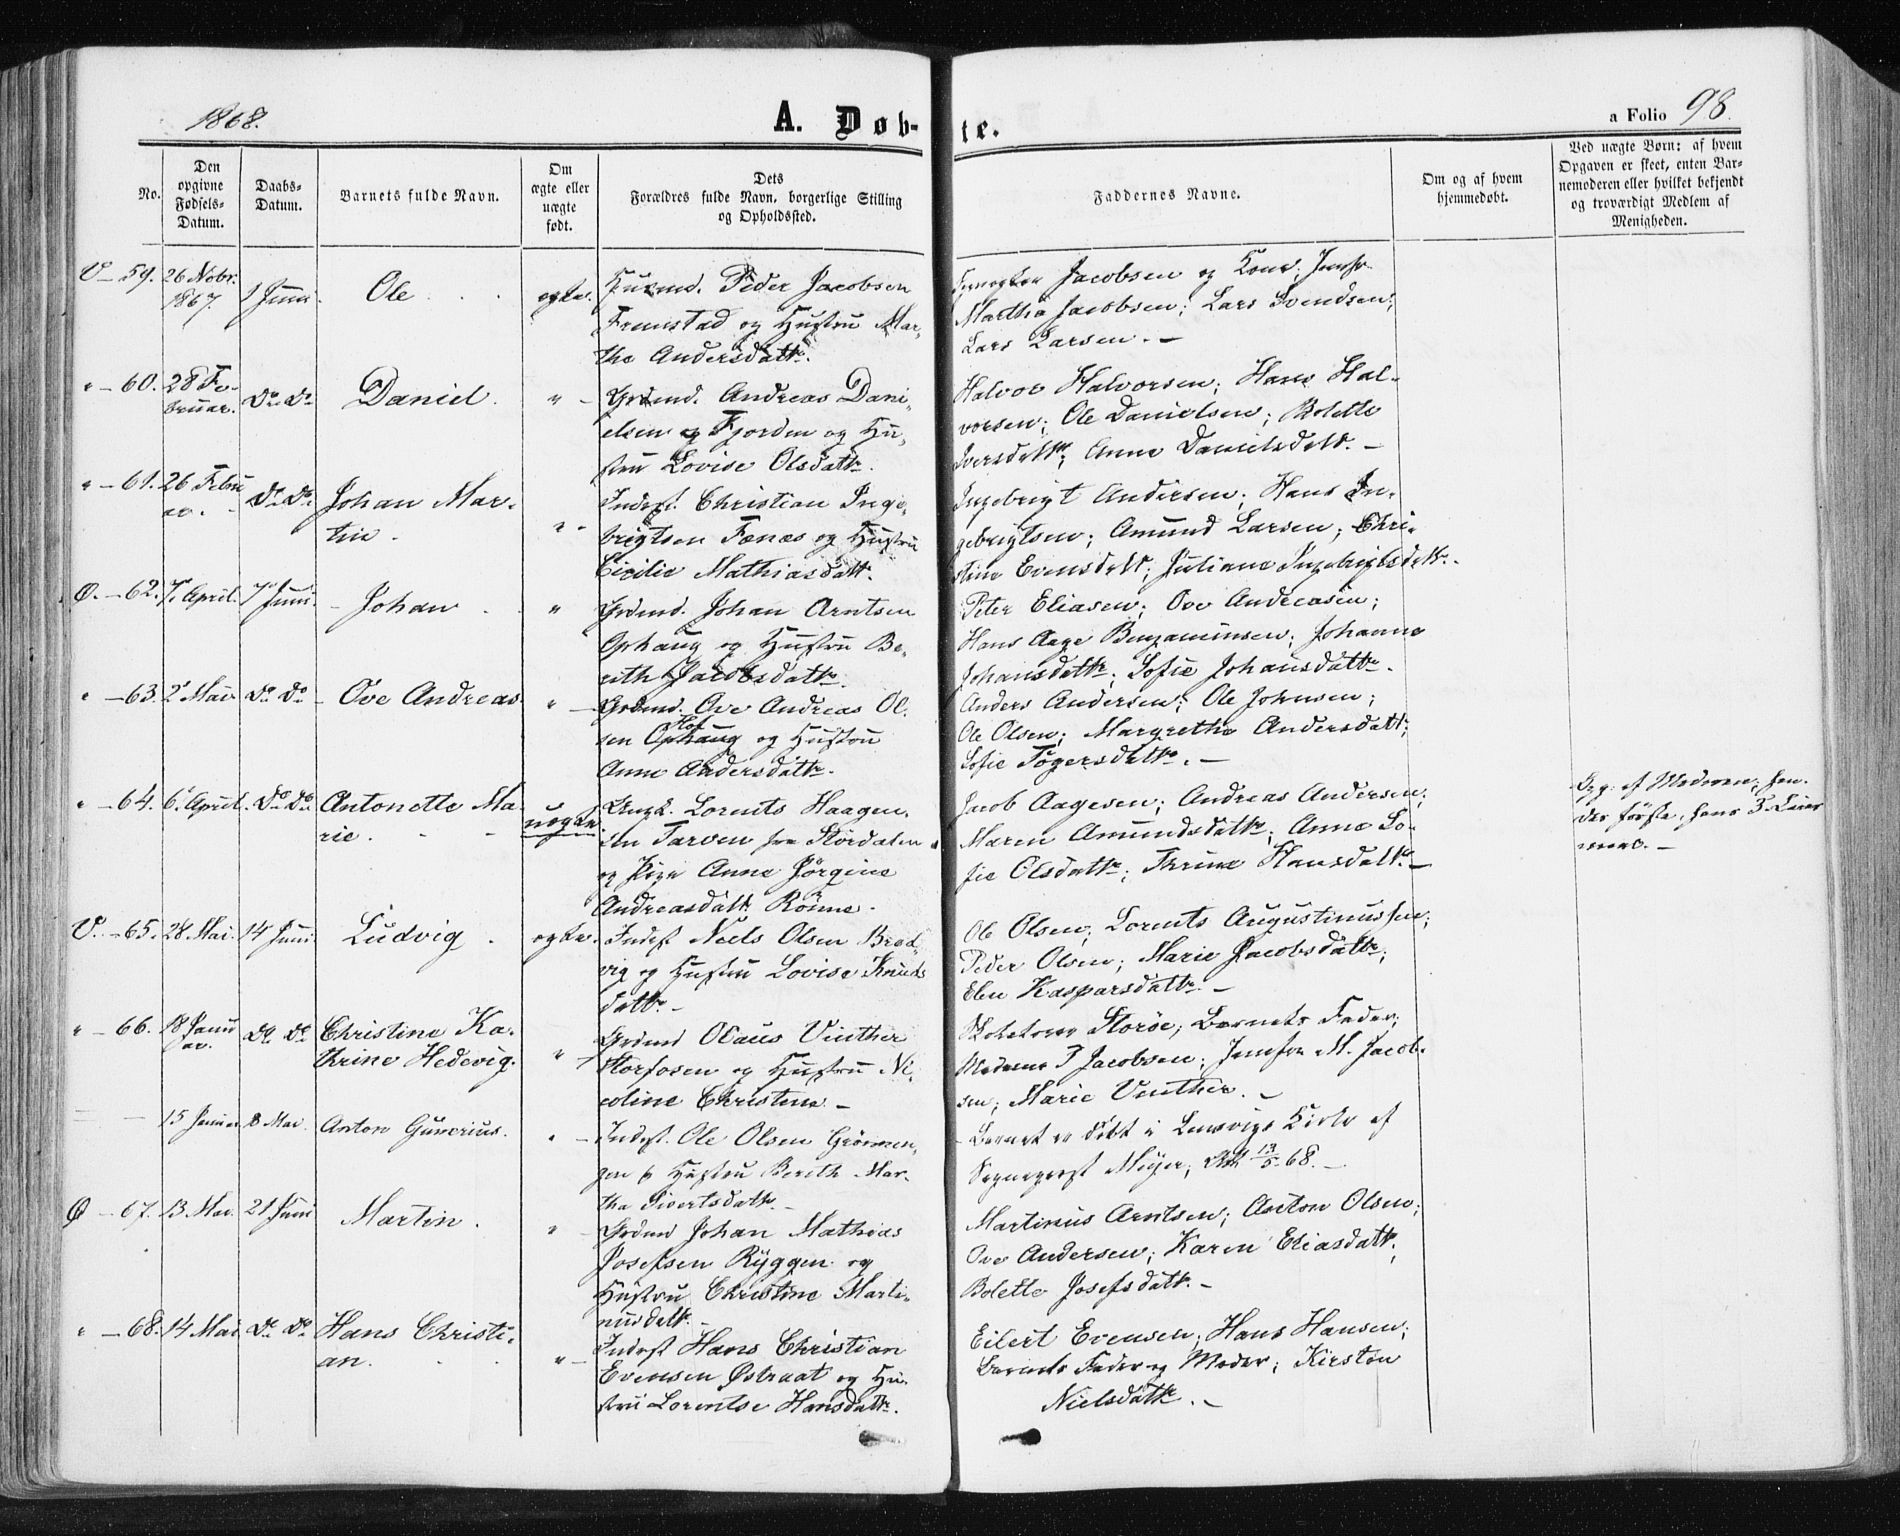 1868.
A. Døb-
te.
a Folio 98.
No.
Den opgivne Fødsels-Datum.
Daabs-Datum.
Barnets fulde Navn.
Om ægte eller uægte født.
Dets Forældres fulde Navn, borgerlige Stilling og Opholdssted.
Faddernes Navne.
Om og af hvem hjemmedøbt.
Ved uægte Børn: af hvem Opgaven er skeet, enten Barnemoderen eller hvilket bekjendt og troværdigt Medlem af Menigheden.
V - 59. 26 Nobr. 1867. 1 Juni. Ole. ægte. Husmd. Peder Jacobsen
Fremstad og Hustru Mar-
tha Andersdatt.
Jacobsen og Kone; Jomfr.
Martha Jacobsen; Lars Svendsen;
Lars Larsen. -
" - 60. 28 Fe-
bruar. Do Do Daniel. " - Grdmd. Andreas Dani-
elsen Fjorden og Hu-
stru Lovise Olsdattr.
Halvor Halvorsen; Hans Hal-
vorsen; Ole Danielsen; Bolette
Iversdattr; Anne Danielsdatt. -
" - 61. 26 Febru
ar. - Do Do Johan Mar-
tin. " - Inderst. Christian Inge-
brigtsen Fænæs og Hustru
Cicilie Mathiasdatt.
Ingebrigt Andersen; Hans In-
gebrigtsen; Amund Larsen; Chri-
stine Evensdatt; Juliane Ingebrigtsdattr.
Ø. - 62. 7. April. 7 Juni. - Johan " Grdmd. Johan Arntsen
Ophaug og Hustru Be-
reth Jacobsdattr.
Peter Eliasen; Ove Andreasen;
Hans Aage Benjaminsen; Johanna
Johansdattr; Sofie Johansdattr.
" - 63. 2 Mai. Do Do - Ove Andreas " - Grdmd. Ove Andreas Ol-
sen Ophaug og Hustru
Anne Andersdattr.
Anders Andersen; Ole Johnsen;
Ole Olsen; Margrethe Andersdatt;
Sofie Tøgersdattr. -
" - 64. 6 April. Do Do Antonette Ma-
rie. uægte Ungk. Lorents Haagen-
sen Tarven fra Størdalen
og Pige Anne Jørgine
Andreasdatt Rønne.
Jacob Aagesen; Andreas Andersen;
Maren Amundsdattr; Anne So-
fie Olsdattr; Thrine Hansdattr -
Opg. af Moderen; hen-
des første, hans 3. Leier
maal. -
V. - 65. 28 Mai. 14 Juni. Ludvig. ægte. Inderst Niels Olsen Bred-
vig og Hustru Lovise Knuds
datt. -
Ole Olsen; Lorents Augustinussen;
Peder Olsen; Marie Jacobsdattr;
Elen Kasparsdattr. -
" - 66. 18 Janu
ar. Do Do Christine Ka-
thrine Hedevig. " - Grdmd Olaus Vinther
Storfosen og Hustru Ni-
coline Christine -
Storøe; Barnets Fader;
Madame P Jacobsen; Jomfru M. Jacob-
sen; Marie Vinther. -
15 Januar 8 Mai. Anton Gunerius. " - Inderst. Ole Olsen Grønnen-
gen & Hustru Bereth Mar-
tha Sivertsdattr. -
- Barnet er døbt i Lensvigs Kirke af
Sognepræst Meyer, 13/5 68. -
Ø - 67. 13 Mai. 21 Juni Martin. " - Grdmd Johan Mathias
Josefsen Ryggen og
Hustru Christine Marti-
nusdatt. -
Martinus Arntsen; Anton Olsen;
Ove Andersen; Karen Eliasdatt;
Bolette Josefsdattr. -
" - 68. 14 Mai. Do Do Hans Christi-
an. " - Inderst Hans Christian
Evensen Østraat og Hu-
stru Lorentse Hansdattr.
Eilert Evensen; Hans Hansen;
Barnets Fader og Moder; Kirsten
Nielsdattr. -